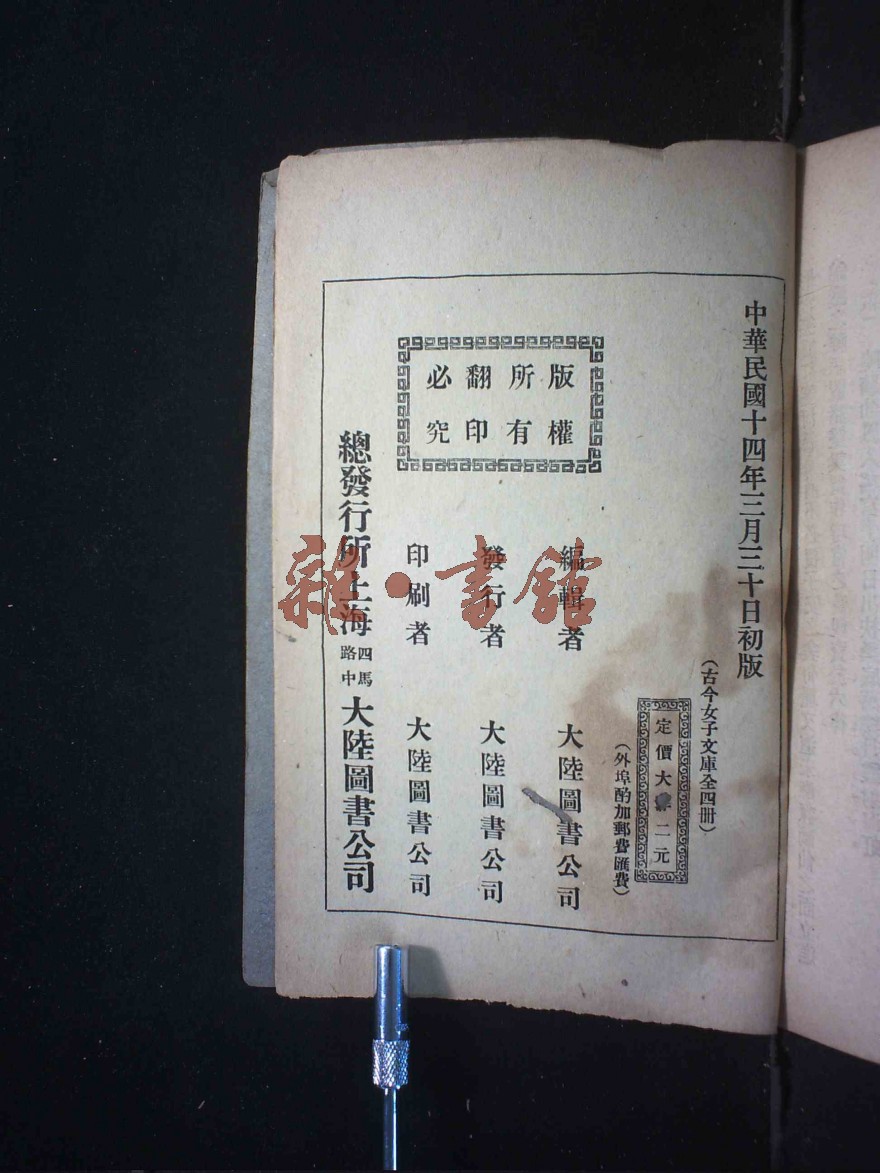 中華民國十四年三月三十日初版
(古今女子文庫全四冊)
定價大 二元
(外埠酌加郵費匯費)
版權
所有
翻印
必究
編輯者 大陸圖書公司
發行者 大陸圖書公司
印刷者 大陸圖書公司
總發行所上海四馬路中大陸圖書公司
雜·書館